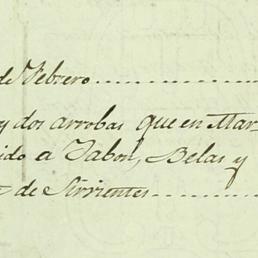 de Febrero
y dos arrobas que en Mar
ido a Jabon, Belas y
de Sirvientes